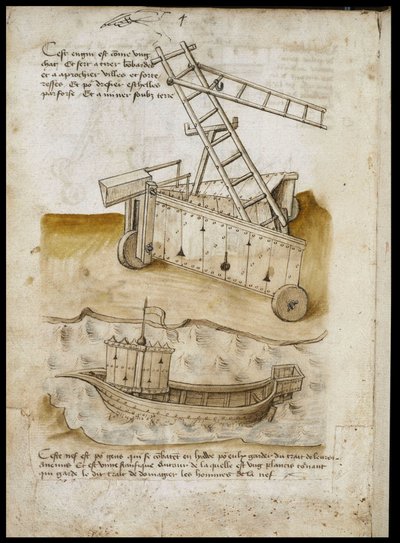 4
Cest engin est come ung
chat Et sert a tirer bobardes
et a aprochier villes et forte
resses Et po dresser eschelles
par forse Et a miner soubz terre
Ceste nef est po gens qui se cobatet en
garder du trait de leurs
anemis Et est une Autour de laquelle est ung planchis
qui garde le dit trait de domagier les hommes de la nef